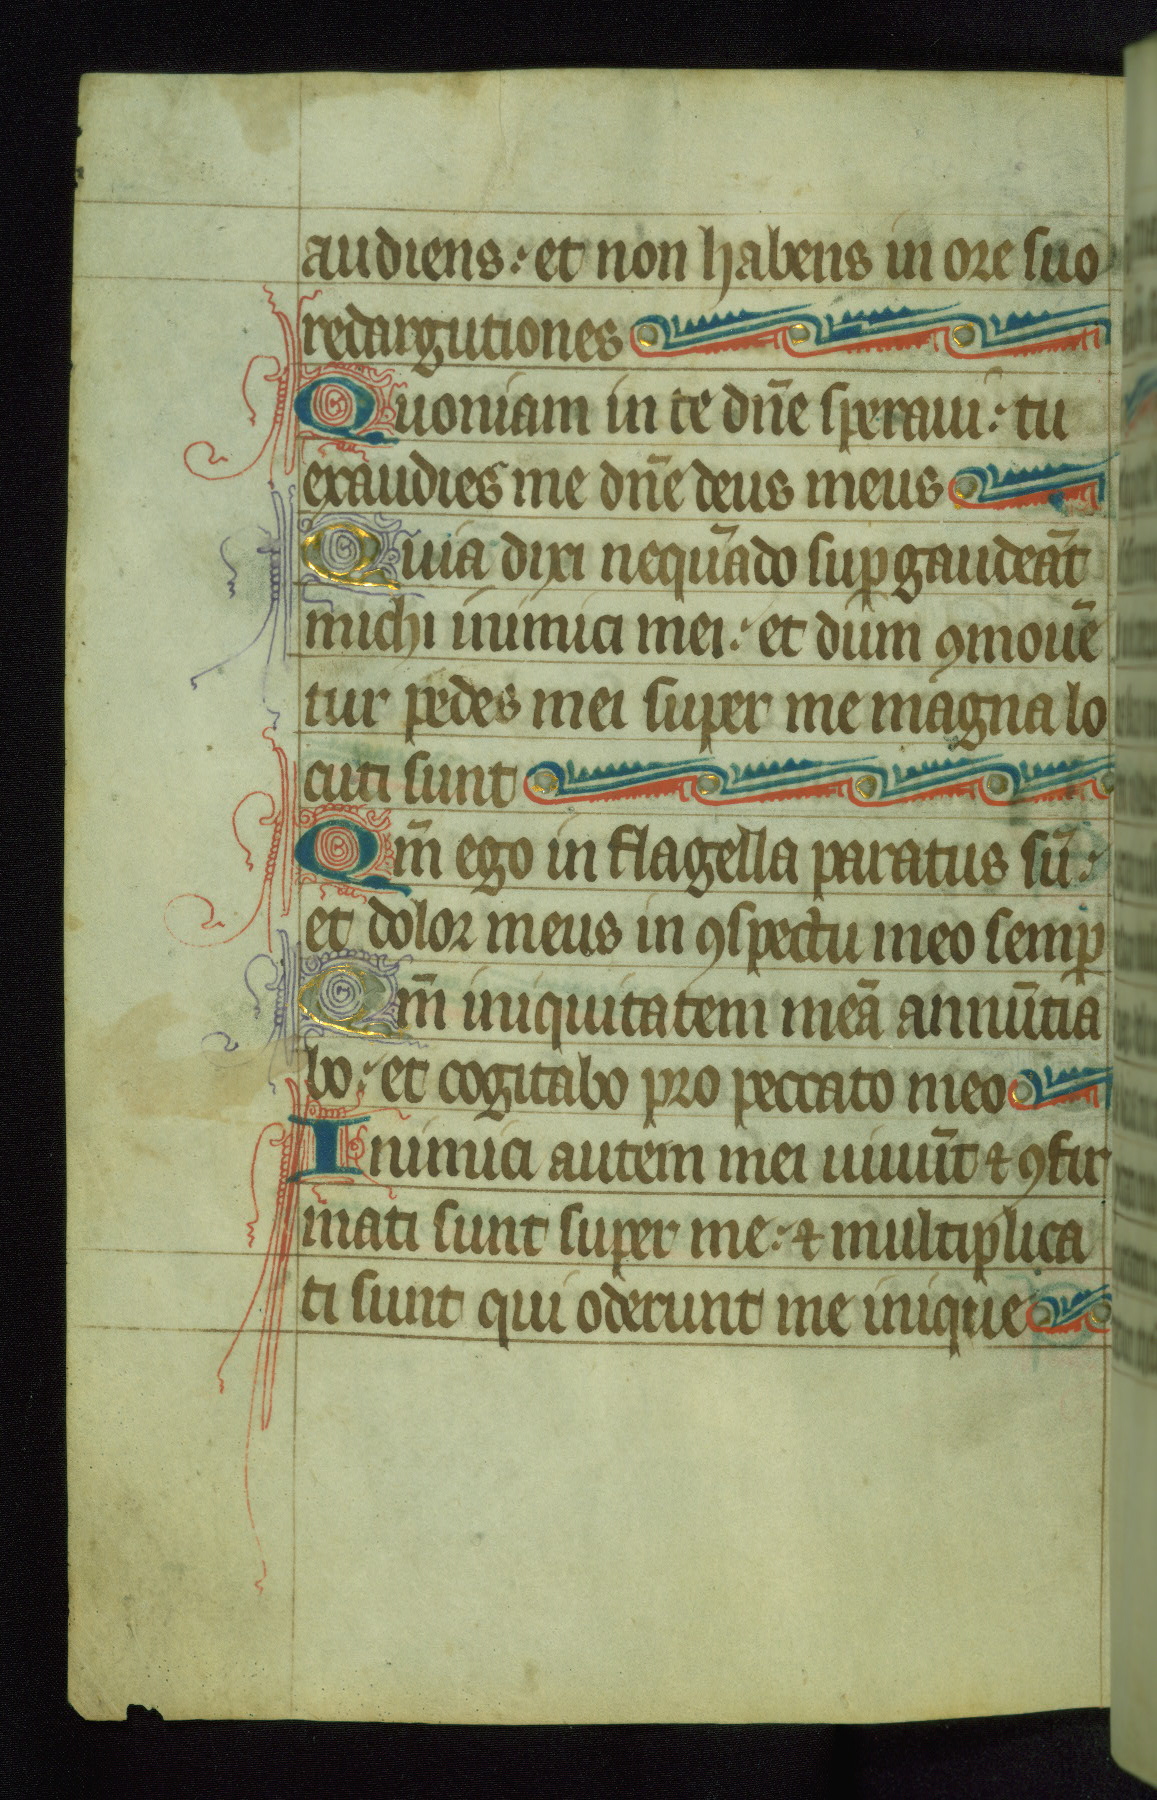 audiens: et non habens in ore suo
redargutiones
Quoniam in te dn̄e speraui: tu
exaudies me dn̄e deus meus
Quia dixi nequā̄do suꝑgaudeāt
michi inimici mei: et dum ꝯmouē
tur pedes mei super me magna lo
cuti sunt
Qm̄ ego in flagella paratus sū:
et dolor meus in ꝯspectu meo semꝑ
Qm̄ iniquitatem meā annūtia
bo: et cogitabo pro peccato meo
Inimici autem mei uiuūt ⁊ ꝯfir
mati sunt super me: ⁊ multiplica
ti sunt qui oderunt me inique